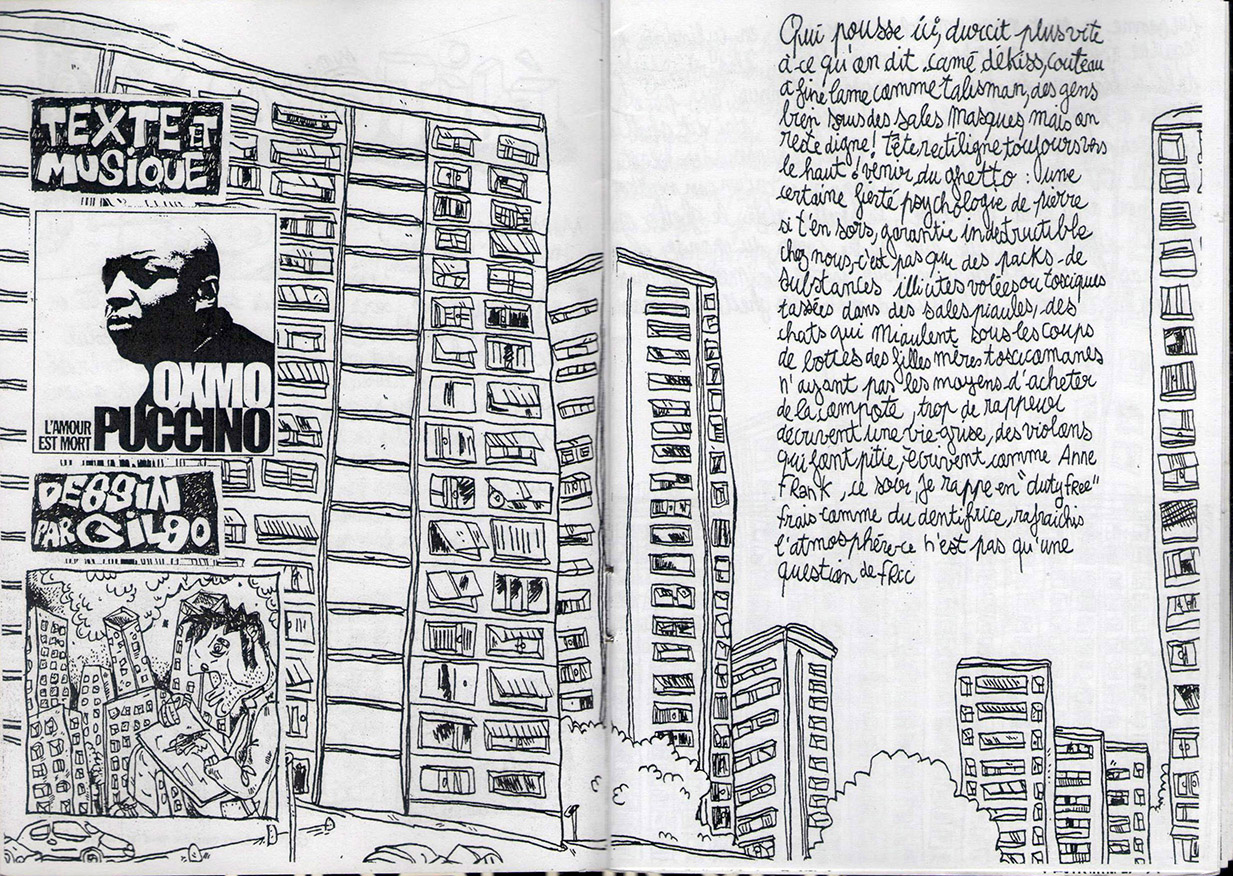 TEXTE ET
MUSIQUE
OXMO
L'AMOUR
EST MORT
PUCCINO
DESSIN
PAR GILGO
Qui pousse ici, durcit plus vite
à ce qu'on dit camé dékiss, couteau
à fine lame comme talisman, des gens
bien sous des sales masques, mais on
reste digne! Tête rectiligne toujours vers
le haut! venir du ghetto : lune
certaine fierté psychologie de pierre
si t'en sors, garantie indestructible
chez nous, c'est pas que des packs de
substances illicites volées ou toxiques
tassées dans des sales piaules, des
chats qui miaulent sous les coups
de bottes des filles mères toxicomanes
n'ayant pas les moyens d'acheter
de la compote, trop de rappeurs
décrivent une vie grise, des violons
qui font pitié, écrivent comme Anne
Frank, ce soir, je rappe en "duty free"
frais comme du dentifrice, rafraichis
l'atmosphère ce n'est pas qu'une
question de fric